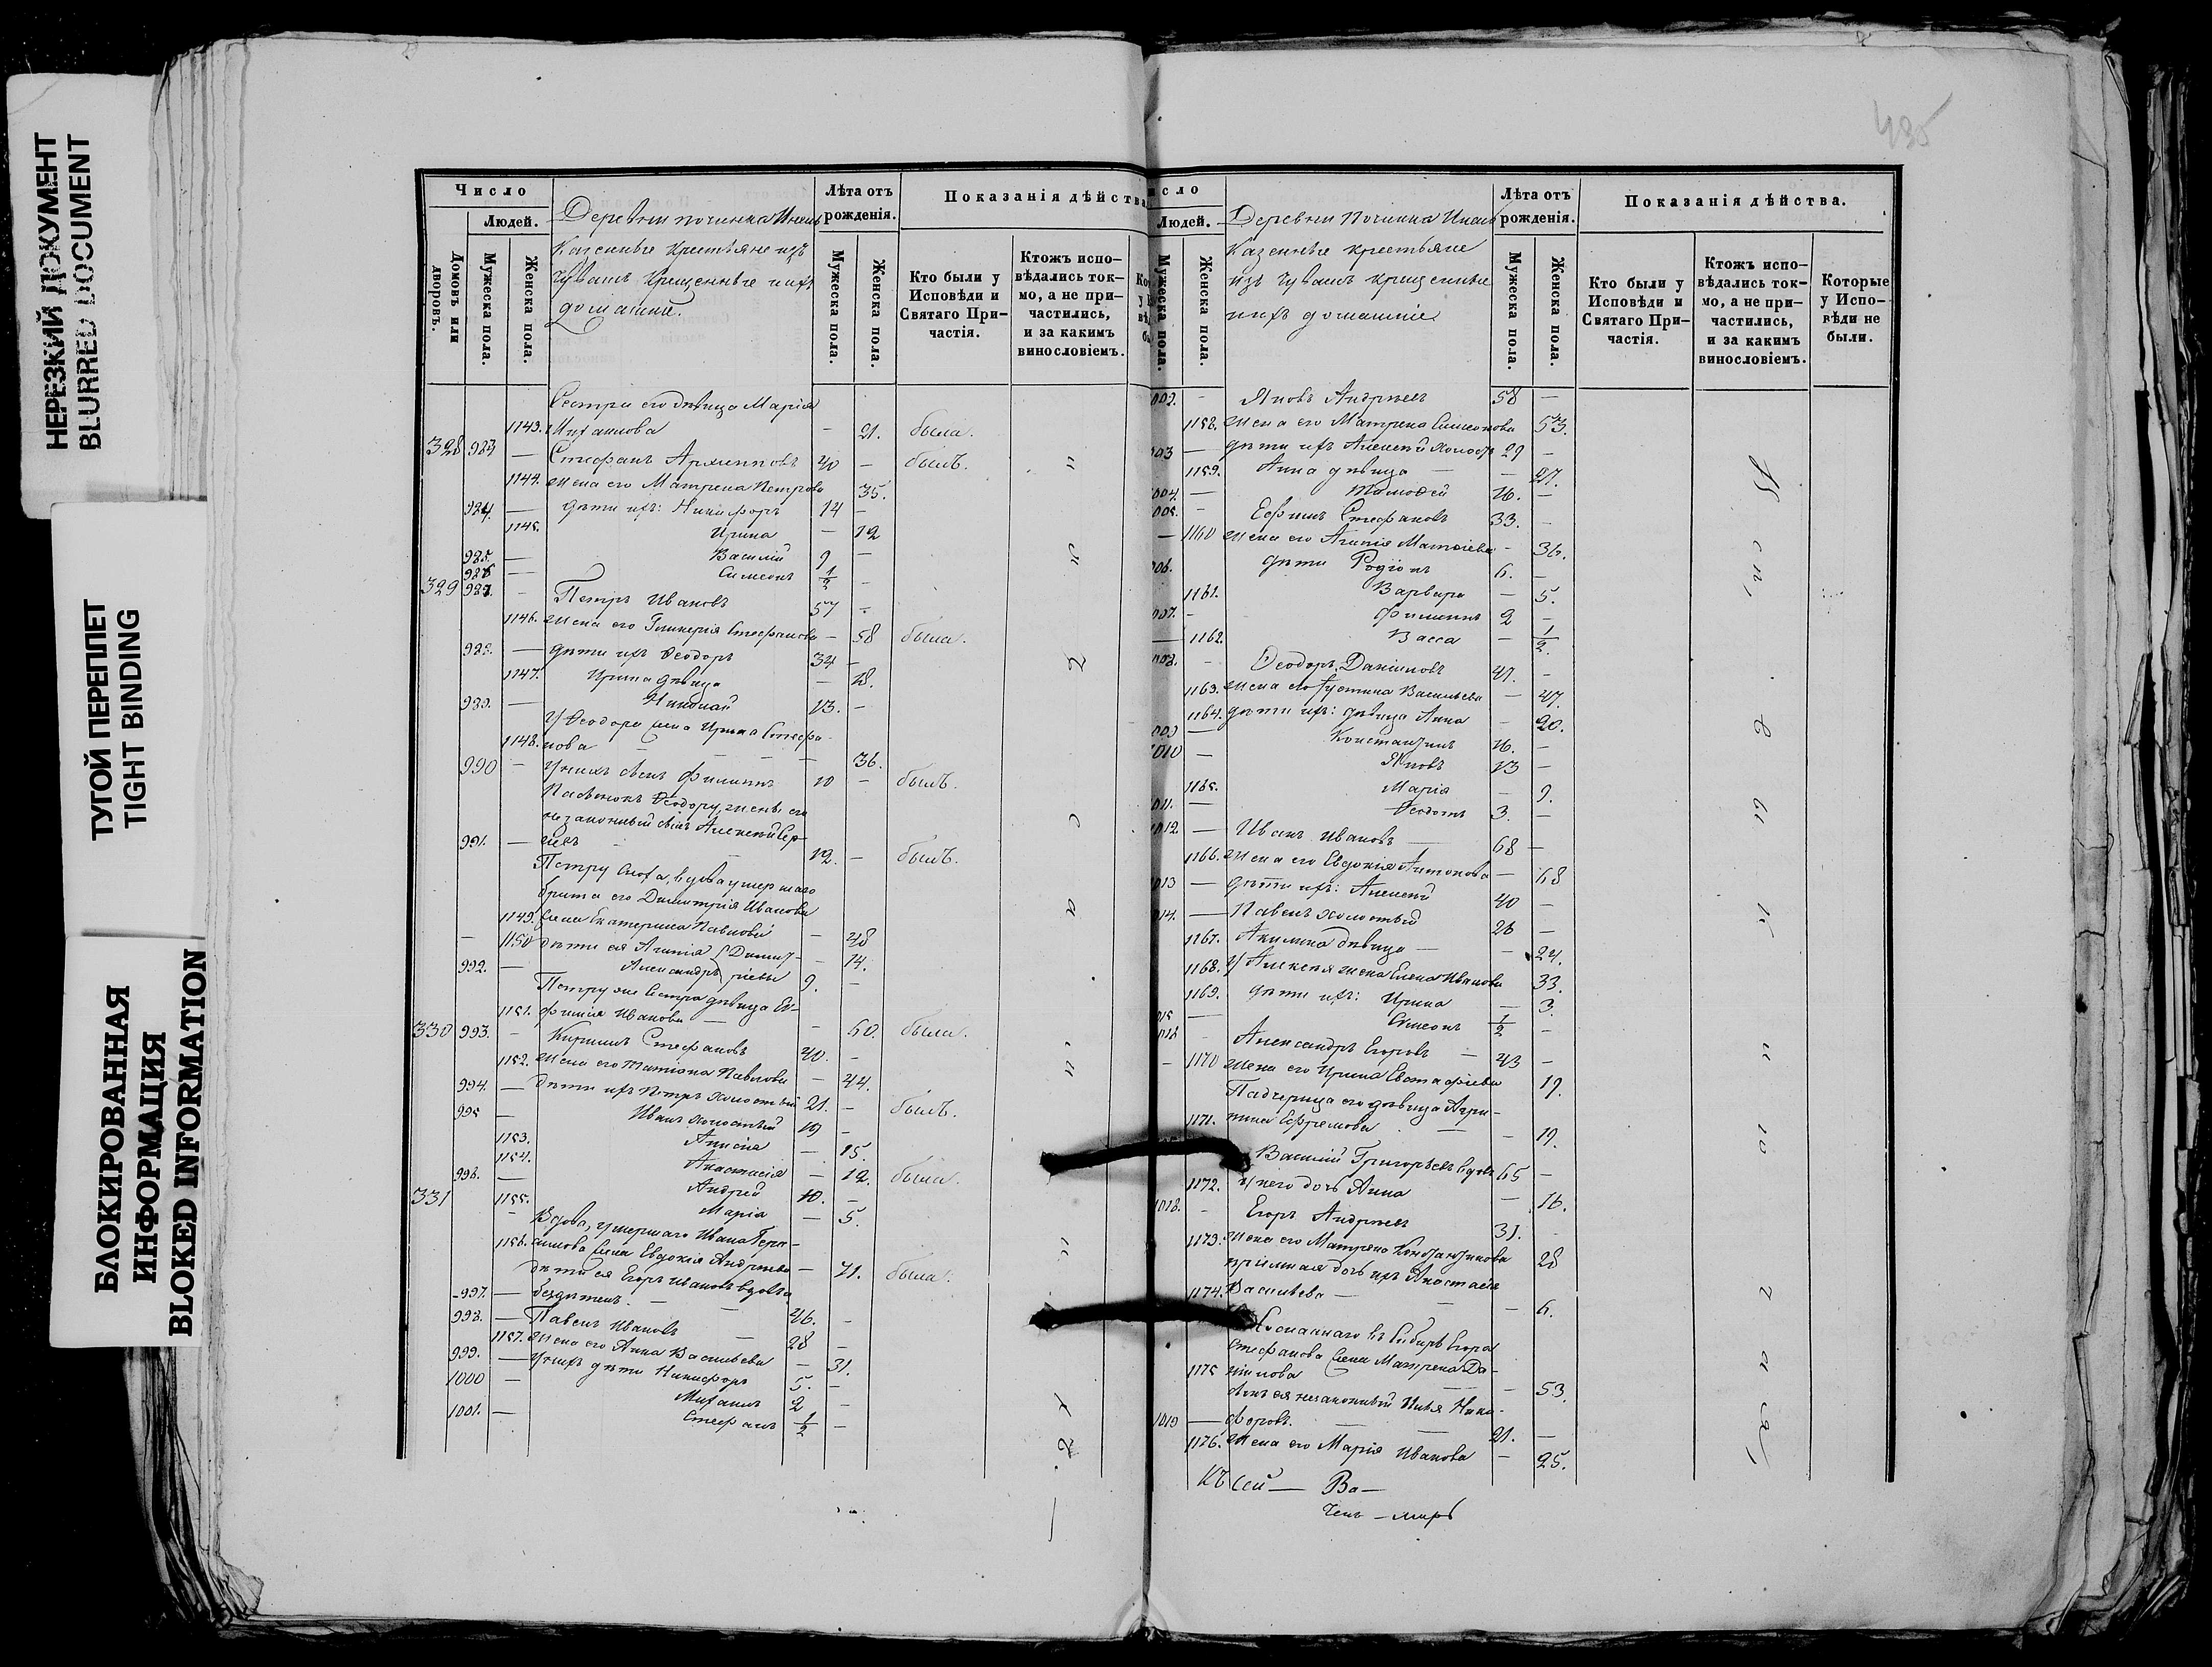 НЕРЕЗКИЙ ДОКУМЕНТ
BLURRED DOCUMENT
ТУГОЙ ПЕРЕПЛЕТ
TIGHT BINDING
БЛОКИРОВАННАЯ
ИНФОРМАЦИЯ
BLOKED INFORMATION
Число
Людей.
Домовъ или дворовъ.
Мужеска пола.
Женска пола.
Деревни починка
Казенные крестьяне изъ
Чувашъ крещенные ихъ
домашніе.
Лѣта отъ рожденія.
Мужеска пола.
Женска пола.
Показанія дѣйства
Кто были у Исповѣди и Святаго Причастія.
Ктожъ исповѣдались токмо, а не причастились, и за какимъ винословіемъ.
Сестра его дѣвица Марія
1143. Михаилова — 21. была.
328 983 — Стефанъ Архиповъ 40 — былъ.
1144. жена его Матрена Петрова 35.
984. — дѣти ихъ: Никифоръ 14 —
1145. Ирина — 12
985. — Василій 9 —
986 — Симеонъ 1/2 —
329 987. — Петръ Ивановъ 57 —
1146. жена его Гликерія Стефанова — 58 была.
988. — дѣти ихъ Ѳеодоръ 34 —
1147. Ирина дѣвица — 18.
989. — Николай 13. —
У Ѳеодора жена Ирина Стефа-
1148. нова — 36.
990 — У нихъ сынъ Филиппъ 10 — былъ.
Пасынокъ Ѳеодору, жены его
незаконный сынъ Алексей Сер-
991. — 12. — былъ.
Петру сноха, вдова умершаго
брата его Димитрія Иванова
1149. жена Екатерина Павлова — 48
1150 дѣти ея Агапія Димит- — 14.
992. — Александръ ріевы 9. —
Петру же сестра дѣвица Ев-
1151. фимія Иванова — 60. была.
330 993. — Кириллъ Стефановъ 40. —
1152. жена его Татіана Павлова — 44.
994. — дѣти ихъ Петръ холостый 21. — былъ.
995 — Иванъ холостый 19 —
1153. Анисія — 15.
1154. Анастасія — 12. была.
996. — Андрей 10. —
331 1155. Марія — 5.
Вдова, умершаго Ивана Гера-
1156. симова жена Евдокія Андреева — 71. была.
дѣти ея Егоръ Ивановъ вдовъ
997. — бездѣтенъ. 46. —
998. — Павелъ Ивановъ 28 —
1157. жена его Анна Васильева — 31.
999. — У нихъ дѣти Никифоръ 5. —
1000 — Михаилъ 2 —
1001. — Стефанъ 1/2 —
435
исло
Людей.
Мужеска пола.
Женска пола.
Деревни Починка
Казенные крестьяне
изъ Чувашъ крещенные
ихъ домашніе
Лѣта отъ рожденія.
Мужеска пола.
Женска пола.
Показанія дѣйства.
Кто были у Исповѣди и Святаго Причастія.
Ктожъ исповѣдались токмо, а не причастились, и за какимъ винословіемъ.
Которые у Исповѣди не были.
002. — Яковъ Андреевъ 58 —
1158. жена его Матрена Симеонова 53.
003 — дѣти ихъ Алексей холостъ 29 —
1159. Анна дѣвица — 27.
004. — Тимоѳей 16. —
005. — Ефимъ Стефановъ 33. —
— 1160 жена его Агапія Матвіева — 36.
006. дѣти Родіонъ 6. —
1161. Варвара — 5.
007. — Филиппъ 2 —
— 1162. Васса — 1/2.
008. — Ѳеодоръ Даниловъ 47. —
1163. жена его Іустина Васильева — 47.
1164. дѣти ихъ: дѣвица Анна — 20.
009 — Константинъ 16. —
1010 — Яковъ 13 —
1165. Марія — 9.
011. — Ѳедотъ 3. —
1012. — Иванъ Ивановъ — 68 —
1166. жена его Евдокія Антонова — 68
1013 — дѣти ихъ: Алексей 40 —
014. — Павелъ холостый 28 —
1167. Акилина дѣвица — 24.
1168. У Алексея жена Елена Иванова 33.
1169. дѣти ихъ: Ирина — 3.
015 — Симеонъ 1/2 —
016. — Александръ Егоровъ — 43 —
— 1170 жена его Ирина Евстафіева 19.
Падчерица его дѣвица Агри-
1171. пина Ефремова — 19.
Василій Григорьевъ вдовъ 65 —
1172. У него дочь Анна — 16.
1018. — Егоръ Андреевъ 31. —
1173. жена его Матрена Константинова 28
пріемная дочь ихъ Анастасія
1174. Васильева — 6.
Сосланнаго въ Сибирь Егора
Стефанова жена Матрена Да-
1175 нилова — 53.
сынъ ея незаконный Илья Ники-
1019 — форовъ. 21. —
1176. жена его Марія Иванова — 25.
Къ сей — Ва—